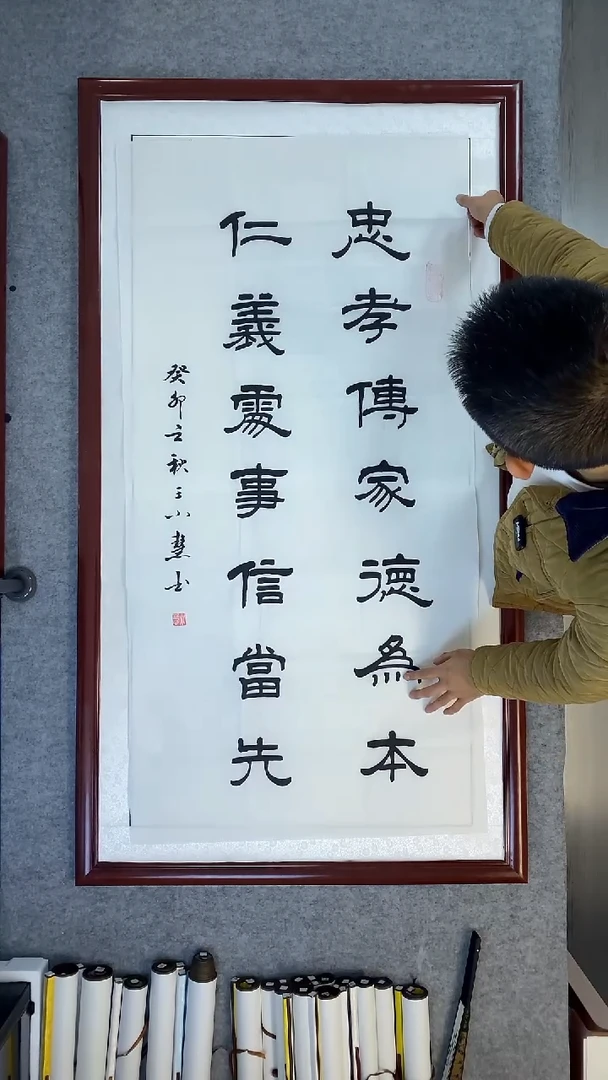 忠孝傳家德為本
仁義處事信當先
癸卯立秋王小慧書